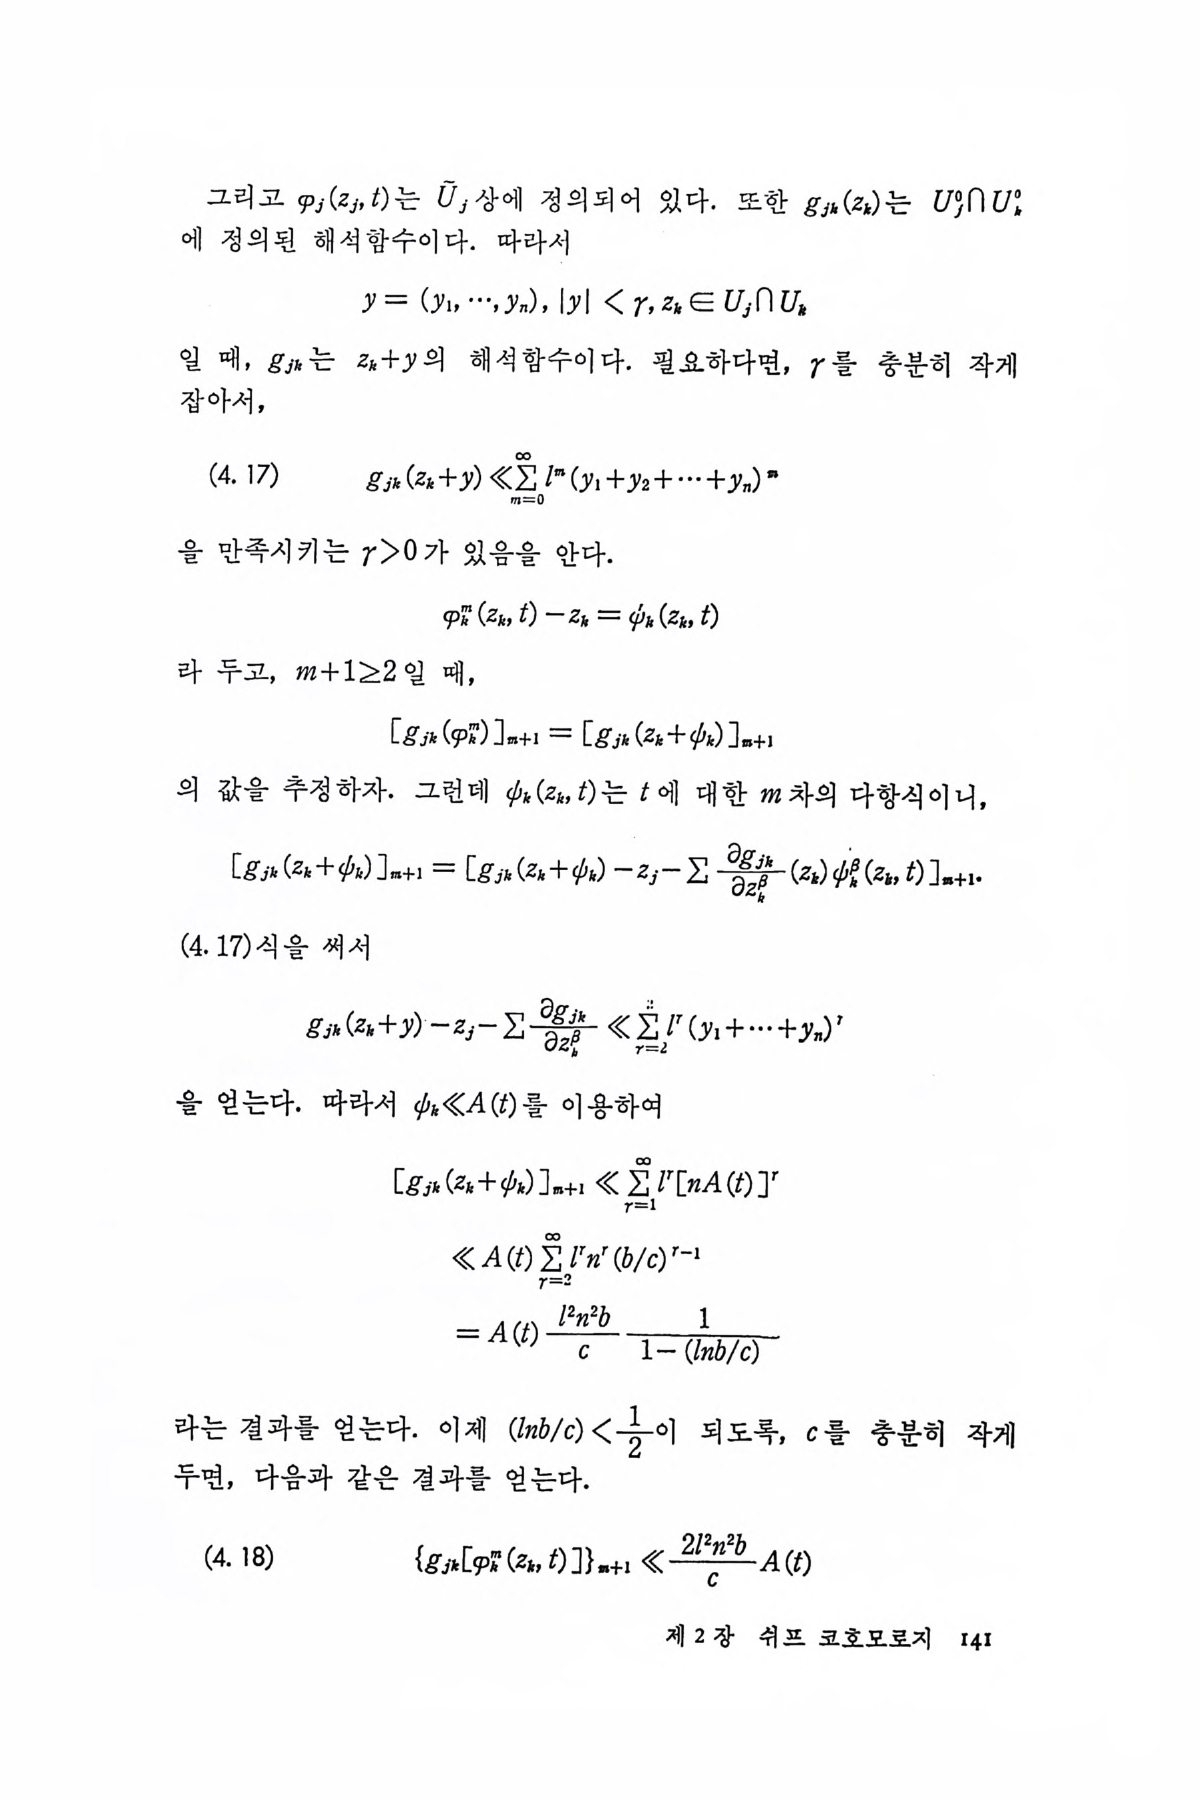 그리고 φⱼ(zⱼ, t)는 Ũⱼ상에 정의되어 있다. 또한 gⱼₖ(zₖ)는 U°ⱼ∩U°ₖ
에 정의된 해석함수이다. 따라서
y = (y₁, ⋯, yₙ), |y| < γ, zₖ ∈ Uⱼ∩Uₖ
일 때, gⱼₖ는 zₖ+y의 해석함수이다. 필요하다면, γ를 충분히 작게
잡아서,
(4. 17) gⱼₖ(zₖ+y) ≪ ∑_{m=0}^{∞} lᵐ(y₁+y₂+⋯+yₙ)ᵐ
을 만족시키는 γ>0가 있음을 안다.
φₖᵐ(zₖ, t) − zₖ = ψₖ(zₖ, t)
라 두고, m+1≥2일 때,
[gⱼₖ(φₖᵐ)]ₘ₊₁ = [gⱼₖ(zₖ+ψₖ)]ₘ₊₁
의 값을 추정하자. 그런데 ψₖ(zₖ, t)는 t에 대한 m차의 다항식이니,
[gⱼₖ(zₖ+ψₖ)]ₘ₊₁ = [gⱼₖ(zₖ+ψₖ) − zⱼ − ∑ ∂gⱼₖ/∂zₖᵝ (zₖ) ψₖᵝ(zₖ, t)]ₘ₊₁.
(4. 17)식을 써서
gⱼₖ(zₖ+y) − zⱼ − ∑ ∂gⱼₖ/∂zₖᵝ ≪ ∑_{r=2} lʳ(y₁+⋯+yₙ)ʳ
을 얻는다. 따라서 ψₖ≪A(t)를 이용하여
[gⱼₖ(zₖ+ψₖ)]ₘ₊₁ ≪ ∑_{r=1}^{∞} lʳ[nA(t)]ʳ
≪ A(t) ∑_{r=2}^{∞} lʳnʳ(b/c)ʳ⁻¹
= A(t) l²n²b/c 1/(1−(lnb/c))
라는 결과를 얻는다. 이제 (lnb/c)<1/2이 되도록, c를 충분히 작게
두면, 다음과 같은 결과를 얻는다.
(4. 18) {gⱼₖ[φₖᵐ(zₖ, t)]}ₘ₊₁ ≪ 2l²n²b/c A(t)
제 2 장 쉬프 코호모로지 141